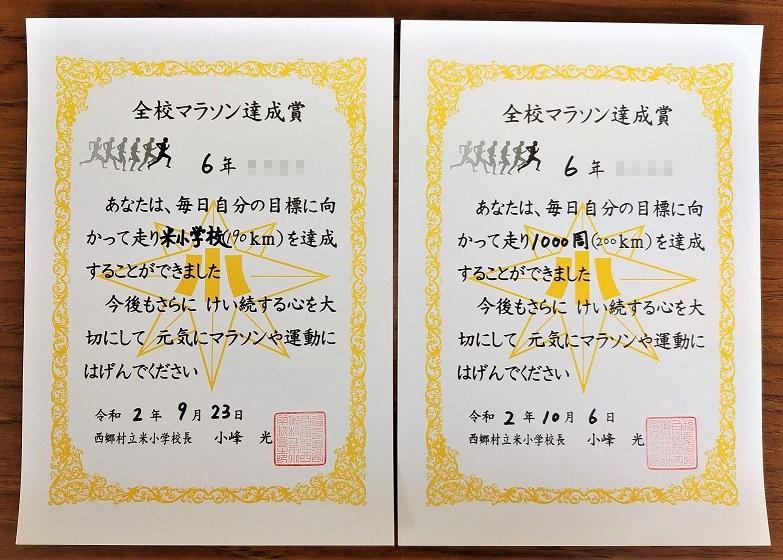 全校マラソン達成賞
6年
あなたは、毎日自分の目標に向
かって走り米小学校(190km)を達成
することができました
今後もさらに けい続する心を大
切にして 元気にマラソンや運動に
はげんでください
令和 2 年 9 月 23 日
西郷村立米小学校長 小峰 光
全校マラソン達成賞
6年
あなたは、毎日自分の目標に向
かって走り1000周(200km)を達成
することができました
今後もさらに けい続する心を大
切にして 元気にマラソンや運動に
はげんでください
令和 2 年 10 月 6 日
西郷村立米小学校長 小峰 光